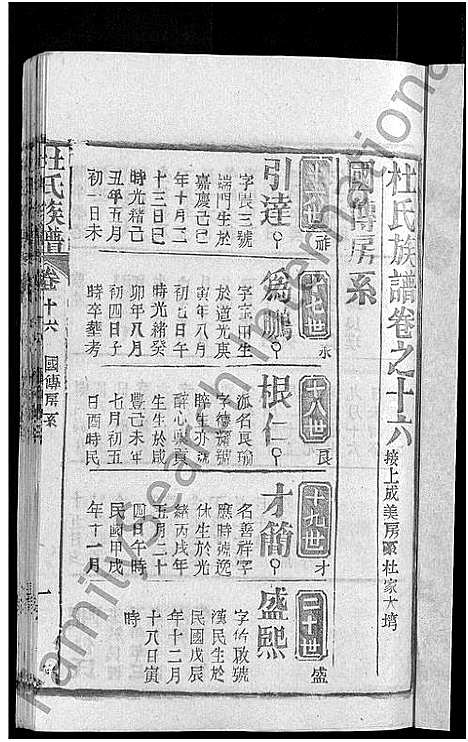 杜氏族譜卷之十六 接上成美房 杜家大塆
國傳房系
十六世 祚
引達
字 三號
端門生於
嘉慶己巳
年十月二
十三日巳
時光緒己
丑年五月
初一日未
十七世 永
為鵬
字 田生
於道光庚
寅年八月
初七日午
時光緒癸
卯年八月
初四日子
時卒葬考
十八世 良
根仁
派名良瑜
字德 
 生 號
醉心 
生生於咸
豐己未年
七月初五
日酉時民
十九世 才
才簡
名善祥字
應時號逸
休生於光
緒丙戌年
五月二十
四日午時
民國甲戌
年十一月
二十世 盛
盛熙
字竹 號
漢民生於
民國戊辰
年十二月
十八日寅
時
杜氏族譜 卷十六 國傳房系 一
Family Search International